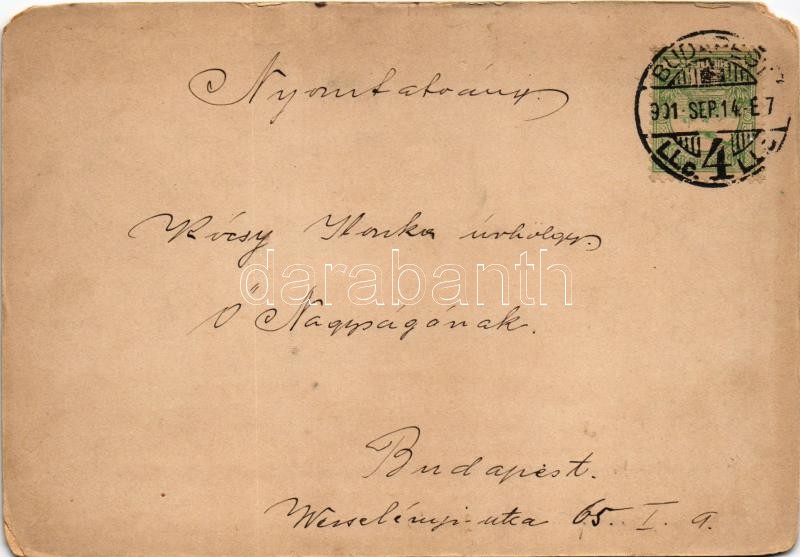 Nyomtatvány.
BUDAPEST
901 SEP.14 E7
LLC. 4 LLC
Ilonka úrhölgy.
darabanth
Ő Nagyságának.
Budapest.
Wesselényi-utca 65. I. 9.